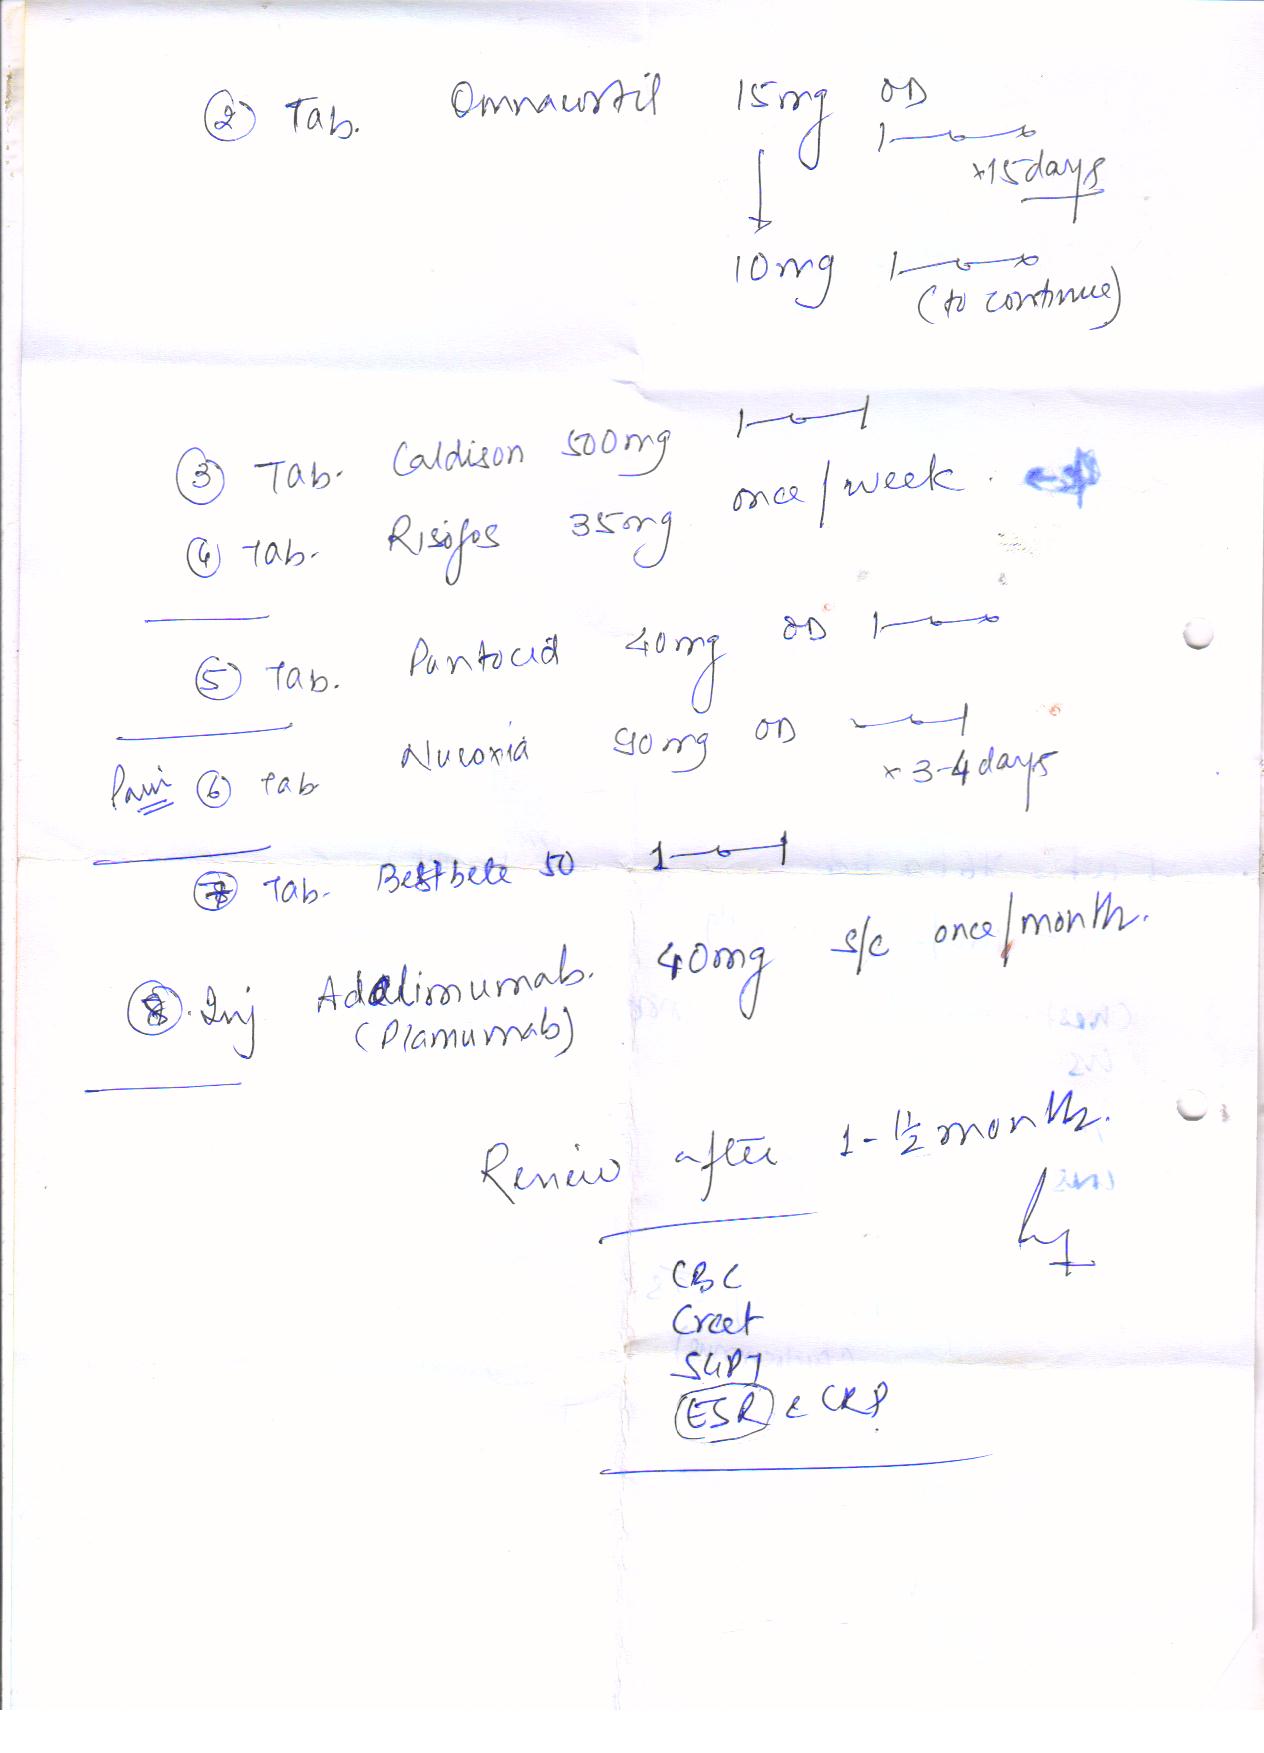 ② Tab. Omnacortil 15mg OD
1—o—o
×15days
↓
10mg 1—o—o
(to continue)
③ Tab. Caldison 500mg 1—o—1
④ Tab. Risofos 35mg once/week.
⑤ Tab. Pantocid 40mg OD 1—o—o
Pain ⑥ Tab Nucoxia 90mg OD —o—1
× 3-4 days
⑦ Tab. Bestbete 50 1—o—1
⑧. Inj Adalimumab. 40mg s/c once/month.
(Plamumab)
Review after 1-1½ month.
CBC
Creat
SGPT
ESR & CRP